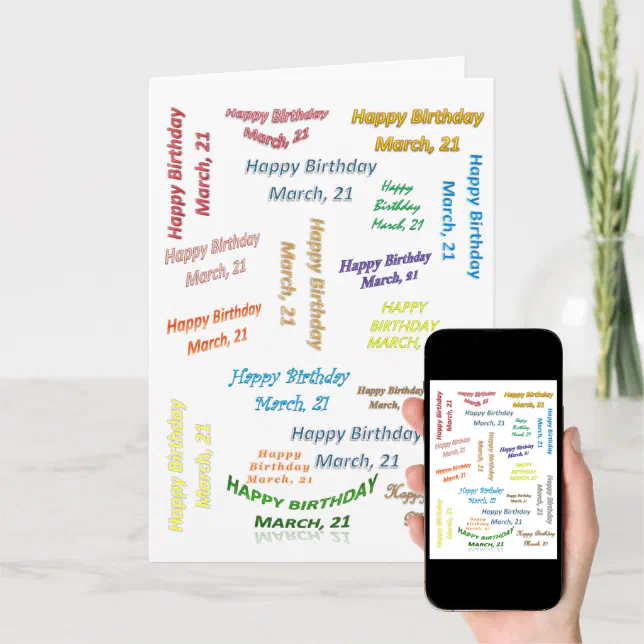 Happy Birthday
March, 21
Happy Birthday
March, 21
Happy Birthday
March, 21
Happy Birthday
March, 21
Happy
Birthday
March, 21
Happy Birthday
March, 21
Happy Birthday
March, 21
Happy Birthday
March, 21
Happy Birthday
March, 21
Happy Birthday
March, 21
HAPPY
BIRTHDAY
MARCH, 21
Happy Birthday
March, 21
Happy
March,
Happy Birthday
March, 21
Happy Birthday
March, 21
Happy
Birthday
March, 21
HAPPY BIRTHDAY
MARCH, 21
Happy
Happy Birthday
March, 21
Happy Birthday
March, 21
Happy Birthday
March, 21
Happy Birthday
March, 21
Happy
Birthday
March, 21
Happy Birthday
March, 21
Happy Birthday
March, 21
Happy Birthday
March, 21
Happy Birthday
March, 21
Happy Birthday
March, 21
HAPPY
BIRTHDAY
MARCH, 21
Happy Birthday
March, 21
Happy Birthday
March, 21
Happy Birthday
March, 21
Happy Birthday
March, 21
Happy Birthday
March, 21
Happy
Birthday
March, 21
HAPPY BIRTHDAY
MARCH, 21
Happy Birthday
March, 21